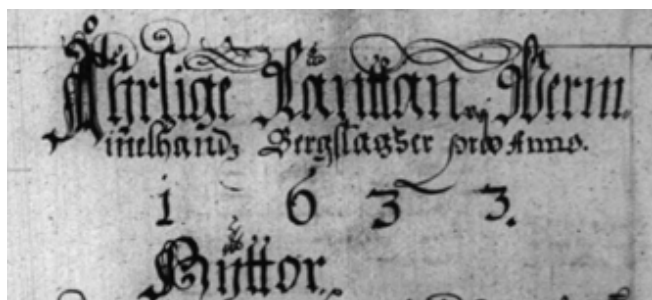 Åhrlige Räntan aff Werm
melhandz Bergslagzer pro Anno.
1633.
Hÿttor.